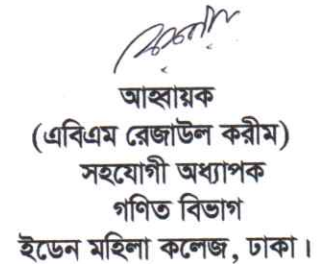 আহ্বায়ক
(এবিএম রেজাউল করীম)
সহযোগী অধ্যাপক
গণিত বিভাগ
ইডেন মহিলা কলেজ, ঢাকা।